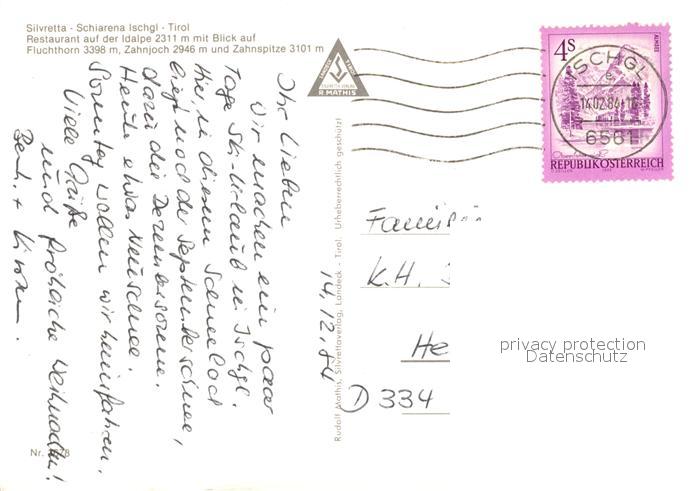 Silvretta - Schiarena Ischgl - Tirol
Restaurant auf der Idalpe 2311 m mit Blick auf
Fluchthorn 3398 m, Zahnjoch 2946 m und Zahnspitze 3101 m
Ihr Lieben
Wir machen ein paar
Tage Ski-Urlaub in Ischgl.
Hier, in diesem Schneeloch
liegt noch der Septemberschnee,
dazu die Dezembersonne.
Heute etwas Neuschnee.
Sonntag wollen wir heimfahren.
Viele Grüße
und fröhliche Weihnachten!
Bernh. +
Nr.
14.12.84
Rudolf Mathis, Silvrettaverlag, Landeck - Tirol. Urheberrechtlich geschützt!
LANDECK TIROL
SILVRETTA VERLAG
R. MATHIS
4S
ALMSEE
REPUBLIK ÖSTERREICH
ISCHGL
e
14.02.84-16
6561
Familie
K.H.
He
D 334
privacy protection
Datenschutz